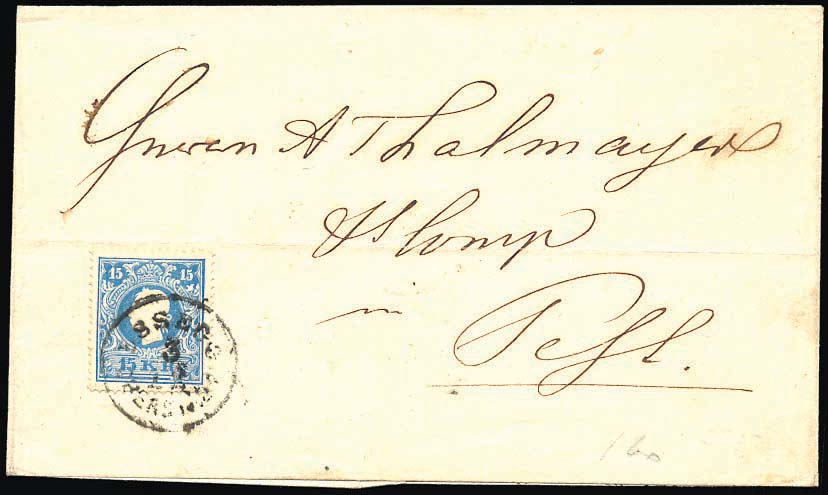 Herren A Thalmayer
& Comp
in
Pest.
15 15
15 KR